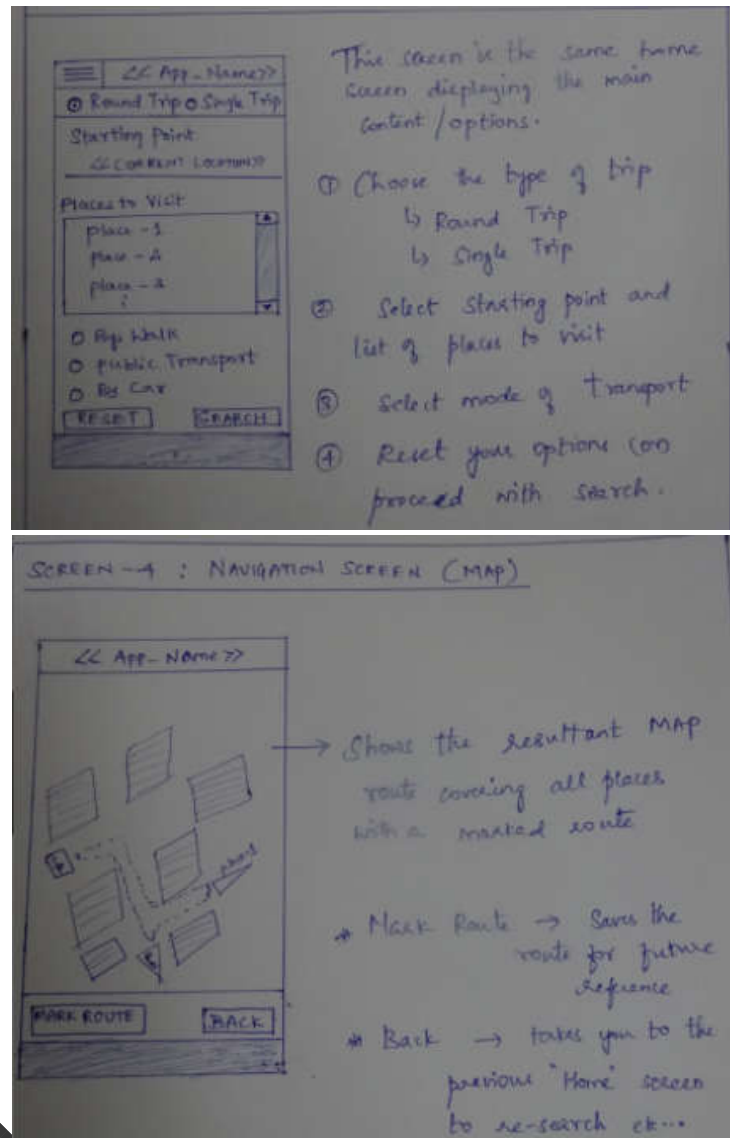 << App_Name>>
Round Trip Single Trip
Starting Point
<< CURRENT LOCATION>>
Places to Visit
place - 1
place - 2
place - 3
By Walk
Public Transport
By Car
RESET SEARCH
This screen is the same home
screen displaying the main
content/options.
① Choose the type of trip
↳ Round Trip
↳ Single Trip
② Select starting point and
list of places to visit
③ Select mode of Transport
④ Reset your options (or)
proceed with search.
SCREEN-4 : NAVIGATION SCREEN (MAP)
<< App_Name >>
MARK ROUTE BACK
→ Shows the resultant MAP
route covering all places
with a marked route
* Mark Route → Saves the
route for future
reference
* Back → takes you to the
previous "Home" screen
to re-search etc...